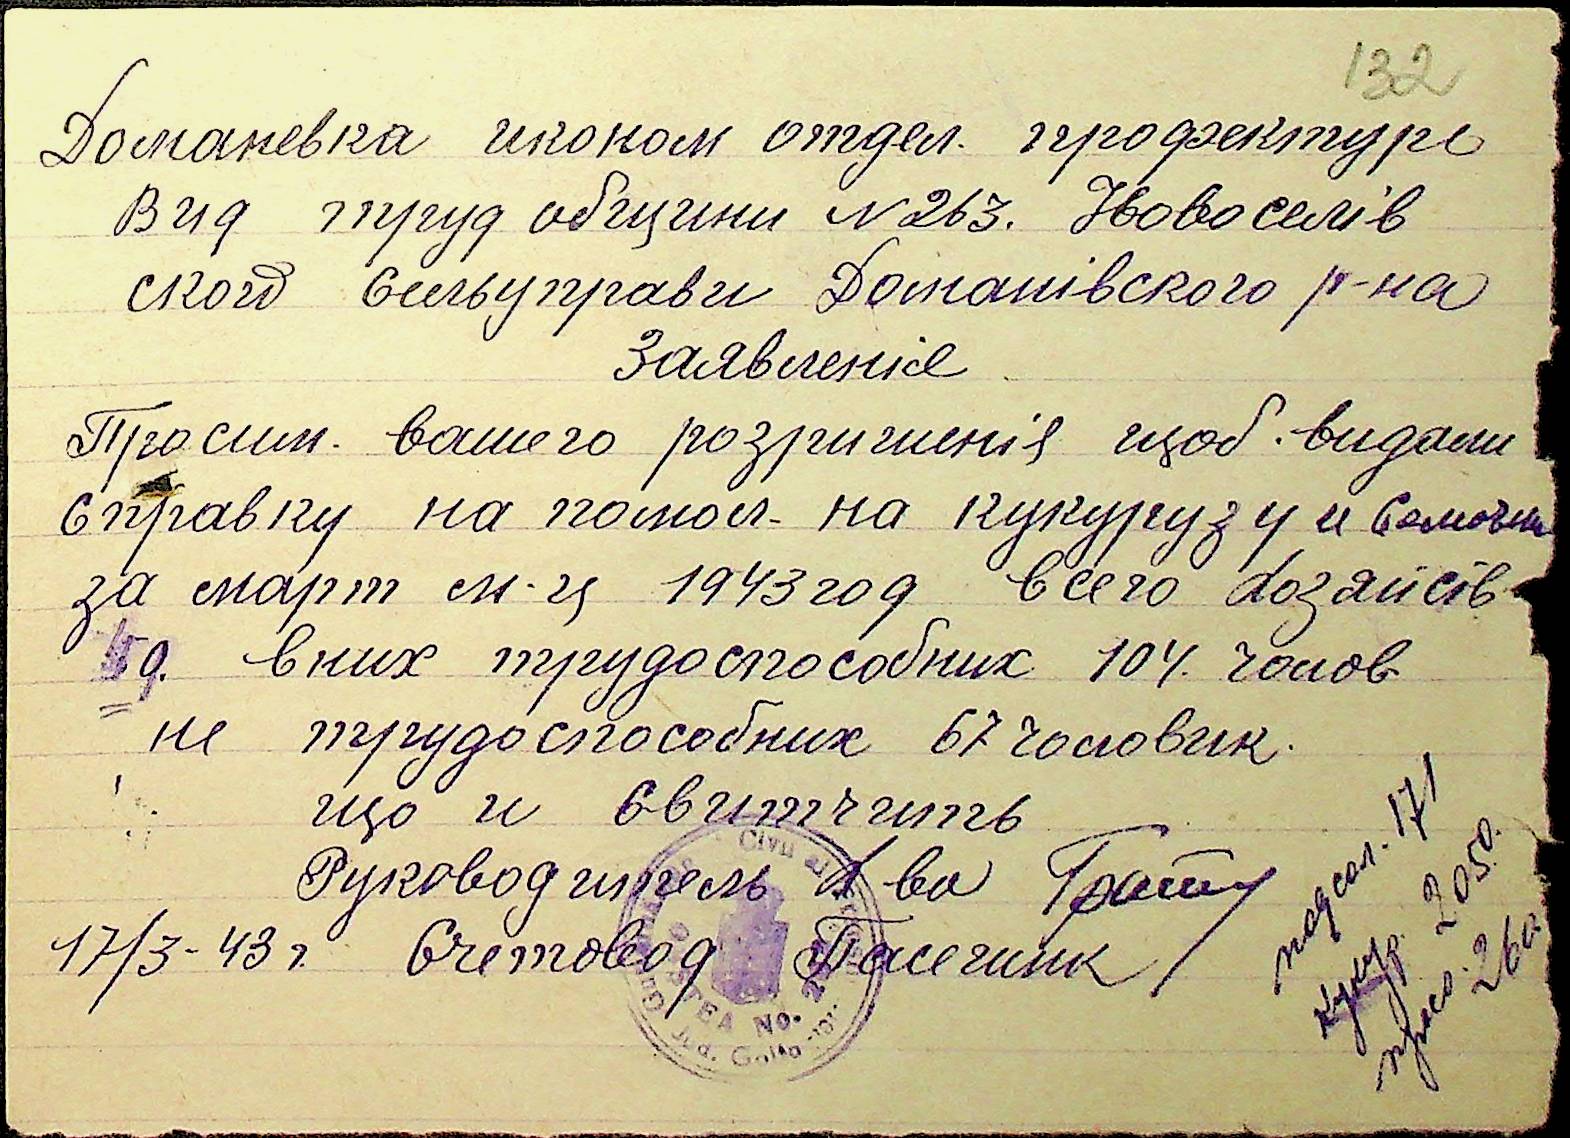 132
Доманевка икоком отдел. профектуре
Вид труд общини N 263. Новоселів
ского Сельуправи Доманівского р-на
Заявленіе
Просим. вашего розришенія щоб. видали
Справку на помол. на кукурузу и
за март м-ц 1943 год всего хозяйсів
59. вних трудоспособних 104. чолов
не трудоспособних 67 чоловик.
що и Свитчить
Руководитель х ва
17/3-43 г. Счетовод Пасечник
подсол. 171
кукур. 2050.
просо. 260
Civil al
No.
Jud. Golta